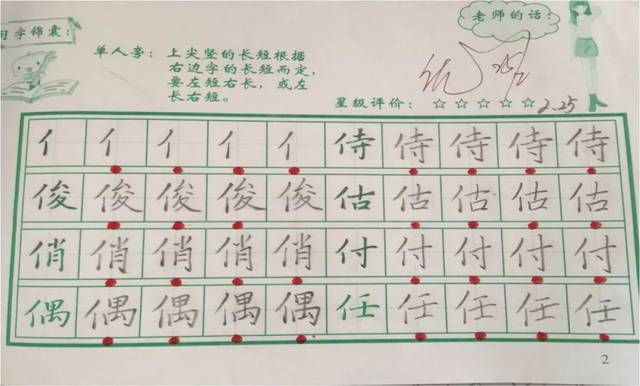 习字锦囊：
单人旁：上尖竖的长短根据
右边字的长短而定，
要左短右长，或左
长右短。
老师的话：
星级评价：☆☆☆☆☆ 2.25
亻亻亻亻亻侍侍侍侍侍
俊俊俊俊俊估估估估估
俏俏俏俏俏付付付付付
偶偶偶偶偶任任任任任
2